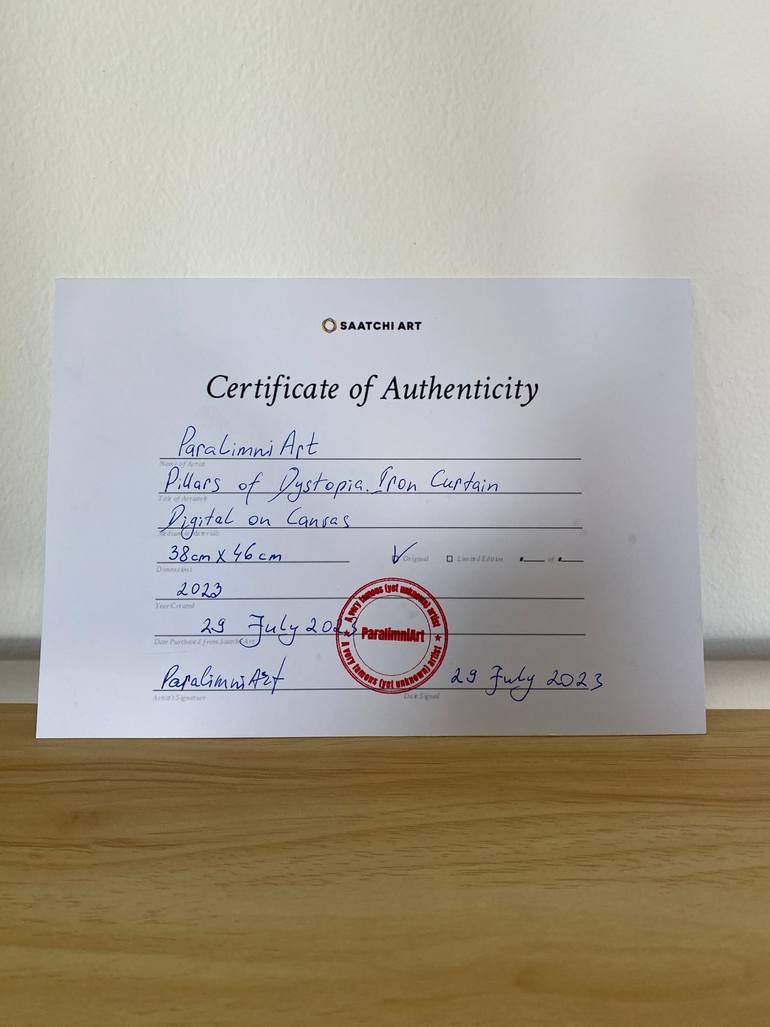 SAATCHI ART
Certificate of Authenticity
Paralimni Art
Name of Artist
Pillars of Dystopia. Iron Curtain
Title of Artwork
Digital on Canvas
Medium & Materials
38cm X 46cm
Original
Limited Edition
of
Dimensions
2023
Year Created
29 July 2023
Date Purchased from Saatchi Art
A very famous (yet unknown) artist
ParalimniArt
A very famous (yet unknown) artist
ParalimniArt
29 July 2023
Artist's Signature
Date Signed